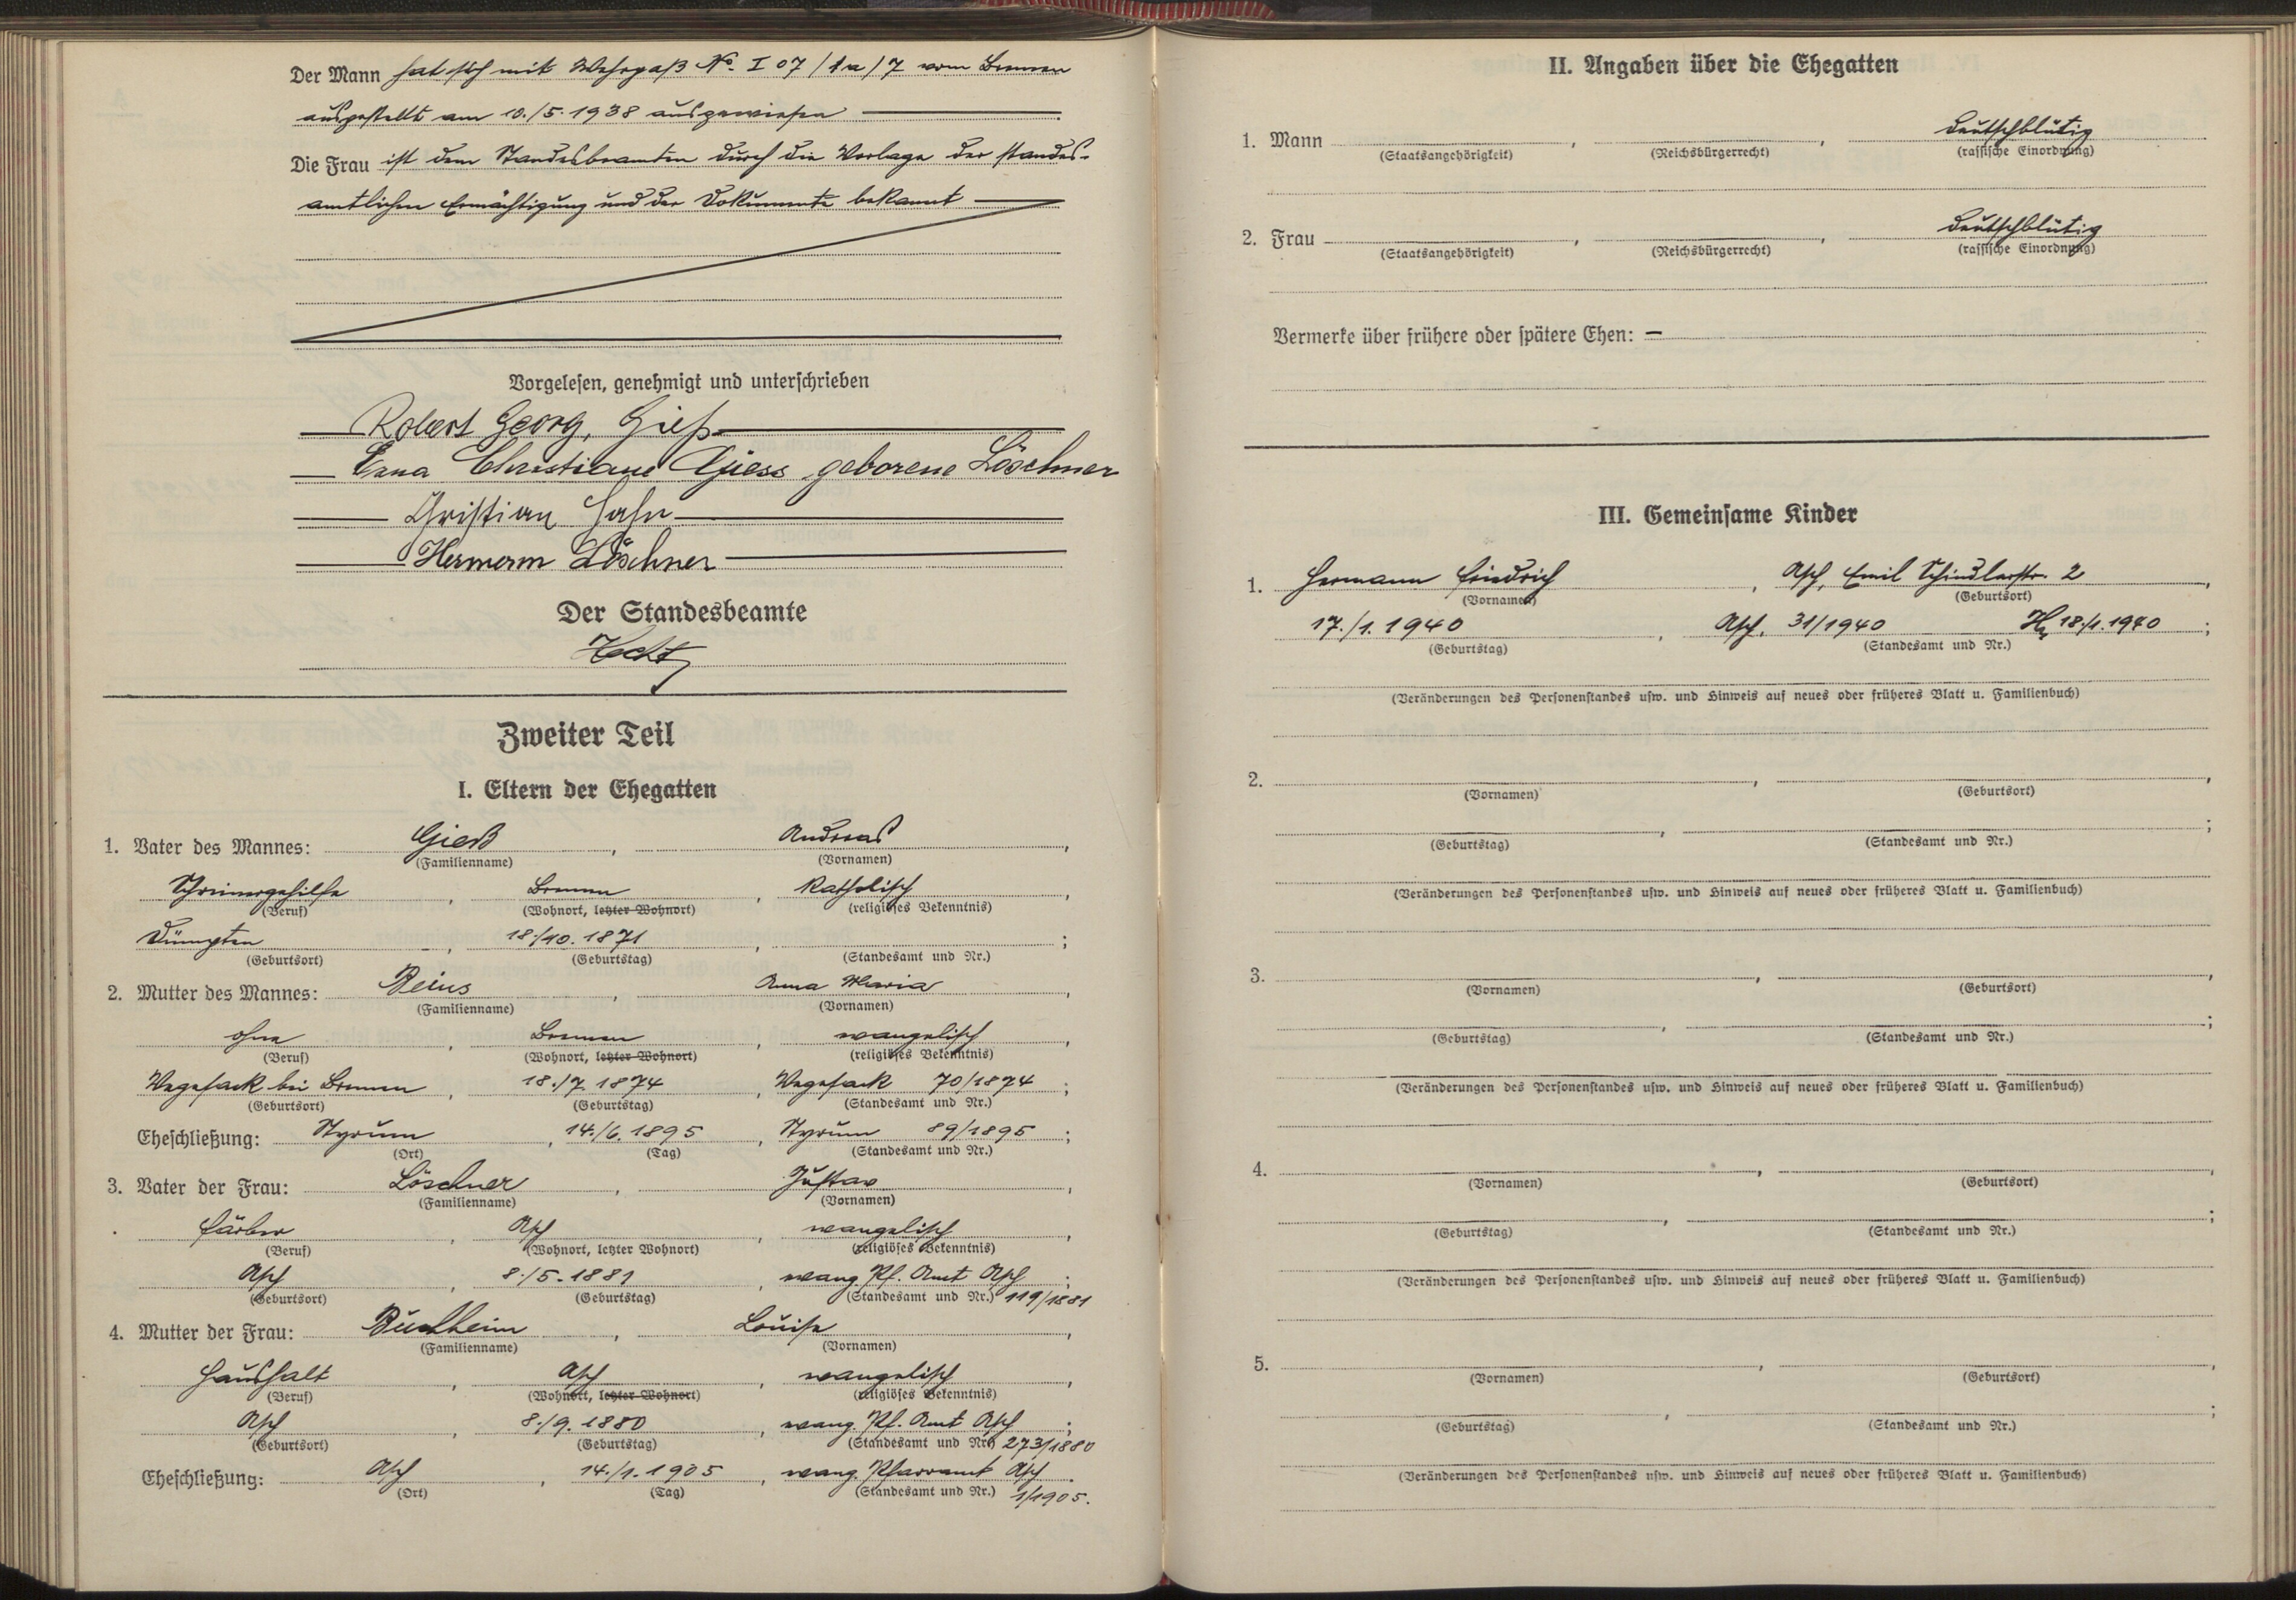 Der Mann hat sich mit Wehrpaß No. I 07/1a/7 vom Bremen
ausgestellt am 10./5. 1938 ausgewiesen
Die Frau ist dem Standesbeamten durch die Vorlage der standes-
amtlichen Ermächtigung und der Dokumente bekannt
Vorgelesen, genehmigt und unterschrieben
Robert Georg, Gieß
Erna Christiane Giess geborene Löschner
Christian Hahn
Hermann Löschner
Der Standesbeamte
Zweiter Teil
I. Eltern der Ehegatten
1. Vater des Mannes: Gieß, Andreas,
(Familienname) (Vornamen)
Schreinergehilfe, Bremen, katholisch,
(Beruf) (Wohnort, letzter Wohnort) (religiöses Bekenntnis)
Dümpten, 18./10. 1871, ;
(Geburtsort) (Geburtstag) (Standesamt und Nr.)
2. Mutter des Mannes: Beins, Anna Maria,
(Familienname) (Vornamen)
ohne, Bremen, evangelisch,
(Beruf) (Wohnort, letzter Wohnort) (religiöses Bekenntnis)
Vegesack bei Bremen, 18./7. 1874, Vegesack 70/1874;
(Geburtsort) (Geburtstag) (Standesamt und Nr.)
Eheschließung: Styrum, 14./6. 1895, Styrum 89/1895;
(Ort) (Tag) (Standesamt und Nr.)
3. Vater der Frau: Löschner, Gustav,
(Familienname) (Vornamen)
Färber, Asch, evangelisch,
(Beruf) (Wohnort, letzter Wohnort) (religiöses Bekenntnis)
Asch, 8./5. 1881, evang. Pf. Amt Asch;
(Geburtsort) (Geburtstag) (Standesamt und Nr.) 119/1881
4. Mutter der Frau: Buchheim, Louise,
(Familienname) (Vornamen)
Haushalt, Asch, evangelisch,
(Beruf) (Wohnort, letzter Wohnort) (religiöses Bekenntnis)
Asch, 8./9. 1880, evang. Pf. Amt Asch;
(Geburtsort) (Geburtstag) (Standesamt und Nr.) 273/1880
Eheschließung: Asch, 14./1. 1905, evang. Pfarramt Asch
(Ort) (Tag) (Standesamt und Nr.) 1/1905.
II. Angaben über die Ehegatten
1. Mann , , deutschblütig
(Staatsangehörigkeit) (Reichsbürgerrecht) (rassische Einordnung)
2. Frau , , deutschblütig
(Staatsangehörigkeit) (Reichsbürgerrecht) (rassische Einordnung)
Vermerke über frühere oder spätere Ehen: —
III. Gemeinsame Kinder
1. Hermann Friedrich, Asch, Emil Schindlerstr. 2,
(Vornamen) (Geburtsort)
17./1. 1940, Asch, 31/1940 18./1. 1940;
(Geburtstag) (Standesamt und Nr.)
(Veränderungen des Personenstandes usw. und Hinweis auf neues oder früheres Blatt u. Familienbuch)
2. , ,
(Vornamen) (Geburtsort)
, ;
(Geburtstag) (Standesamt und Nr.)
(Veränderungen des Personenstandes usw. und Hinweis auf neues oder früheres Blatt u. Familienbuch)
3. , ,
(Vornamen) (Geburtsort)
, ;
(Geburtstag) (Standesamt und Nr.)
(Veränderungen des Personenstandes usw. und Hinweis auf neues oder früheres Blatt u. Familienbuch)
4. , ,
(Vornamen) (Geburtsort)
, ;
(Geburtstag) (Standesamt und Nr.)
(Veränderungen des Personenstandes usw. und Hinweis auf neues oder früheres Blatt u. Familienbuch)
5. , ,
(Vornamen) (Geburtsort)
, ;
(Geburtstag) (Standesamt und Nr.)
(Veränderungen des Personenstandes usw. und Hinweis auf neues oder früheres Blatt u. Familienbuch)